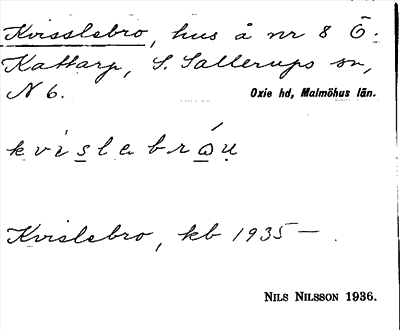 Kvisslebro, hus å nr 8 Ö.
Kattarp, S. Sallerups sn,
N 6. Oxie hd, Malmöhus län.
k v i s l e b r ó u
Kvislebro, kb 1935 — .
NILS NILSSON 1936.